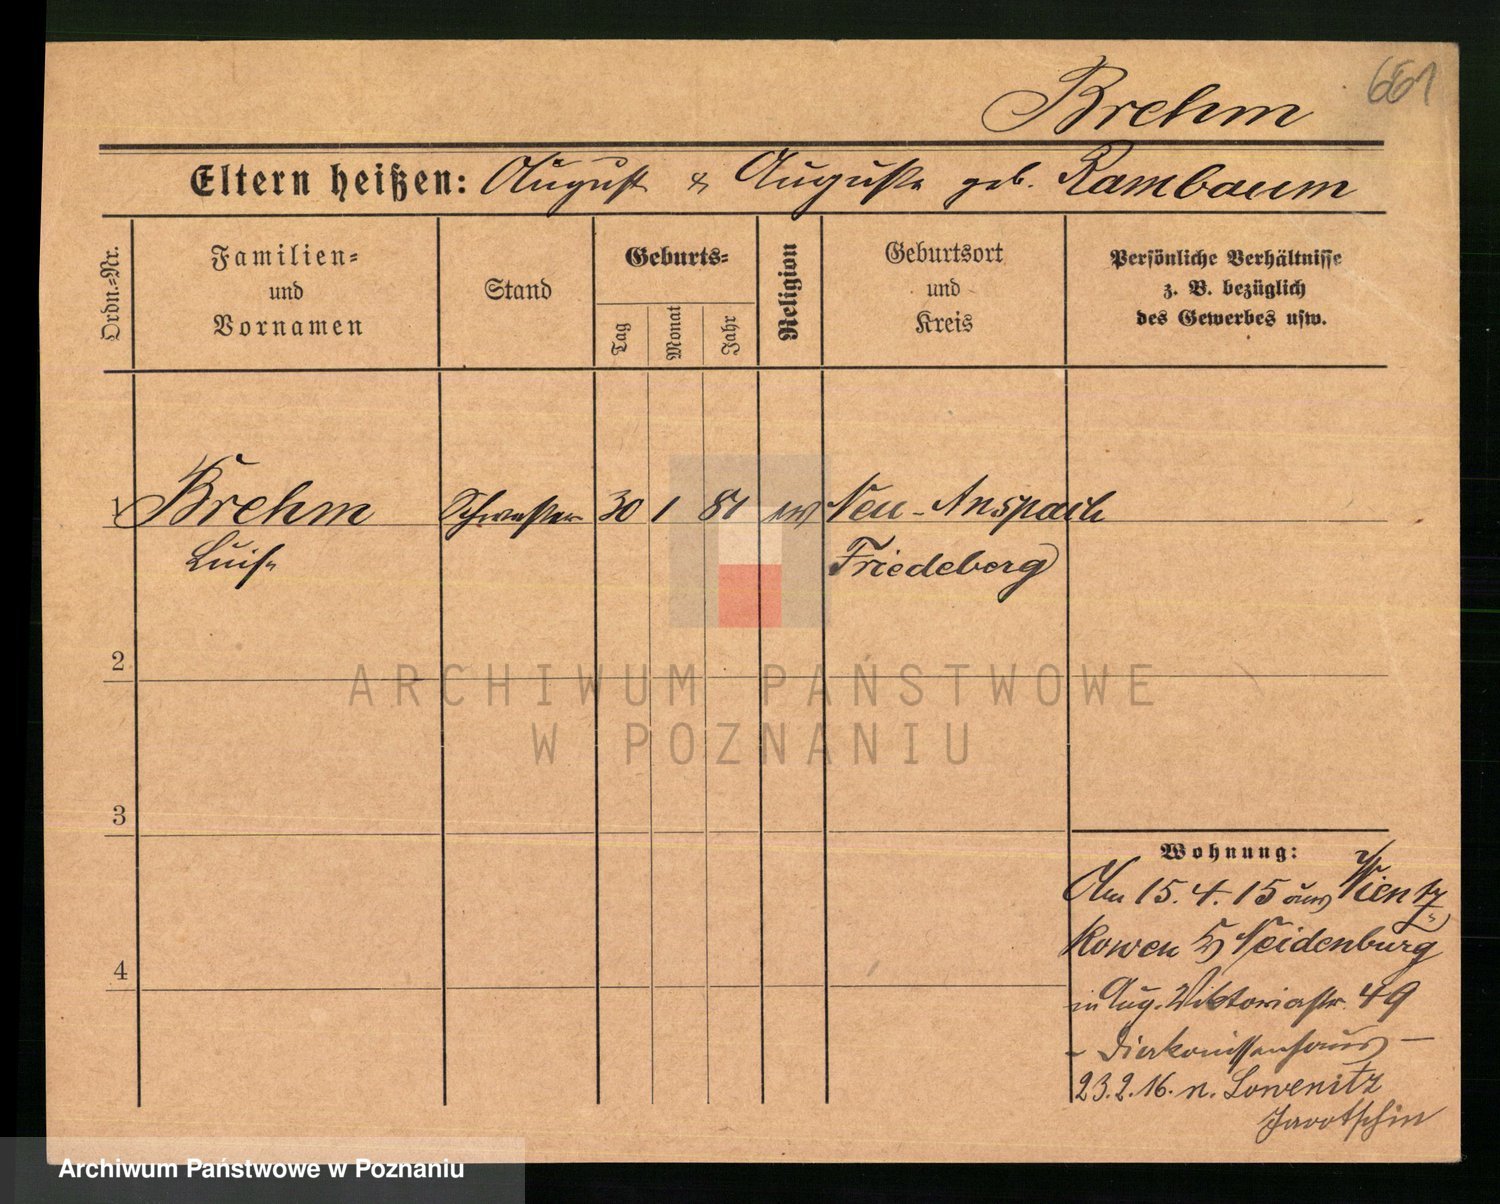 661
Brehm
Eltern heißen: August & Auguste geb. Rambaum
Ordn.-Nr.
Familien-
und
Vornamen
Stand
Geburts-
Tag
Monat
Jahr
Religion
Geburtsort
und
Kreis
Persönliche Verhältnisse
z. B. bezüglich
des Gewerbes usw.
1 Brehm Schwester 30 1 81 ev Neu-Anspach
Luise Friedeberg
2
ARCHIWUM PAŃSTWOWE
W POZNANIU
3
4
Wohnung:
Am 15.4.15 aus Wientz
kowen Neidenburg
in Aug. Viktoriastr. 49
- Diakonissenhaus -
23.2.16. n. Lowenitz
Jarotschin
Archiwum Państwowe w Poznaniu